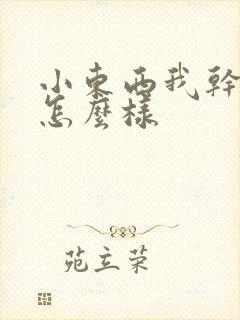 小東西我幹
怎麼樣
苑立荣